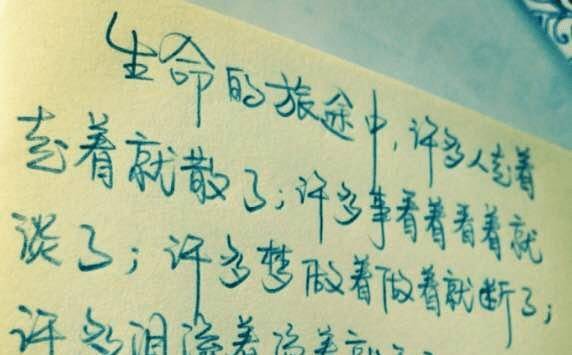 生命的旅途中,许多人走着
走着就散了;许多事看着看着就
淡了;许多梦做着做着就断了;
许多泪流着流着就